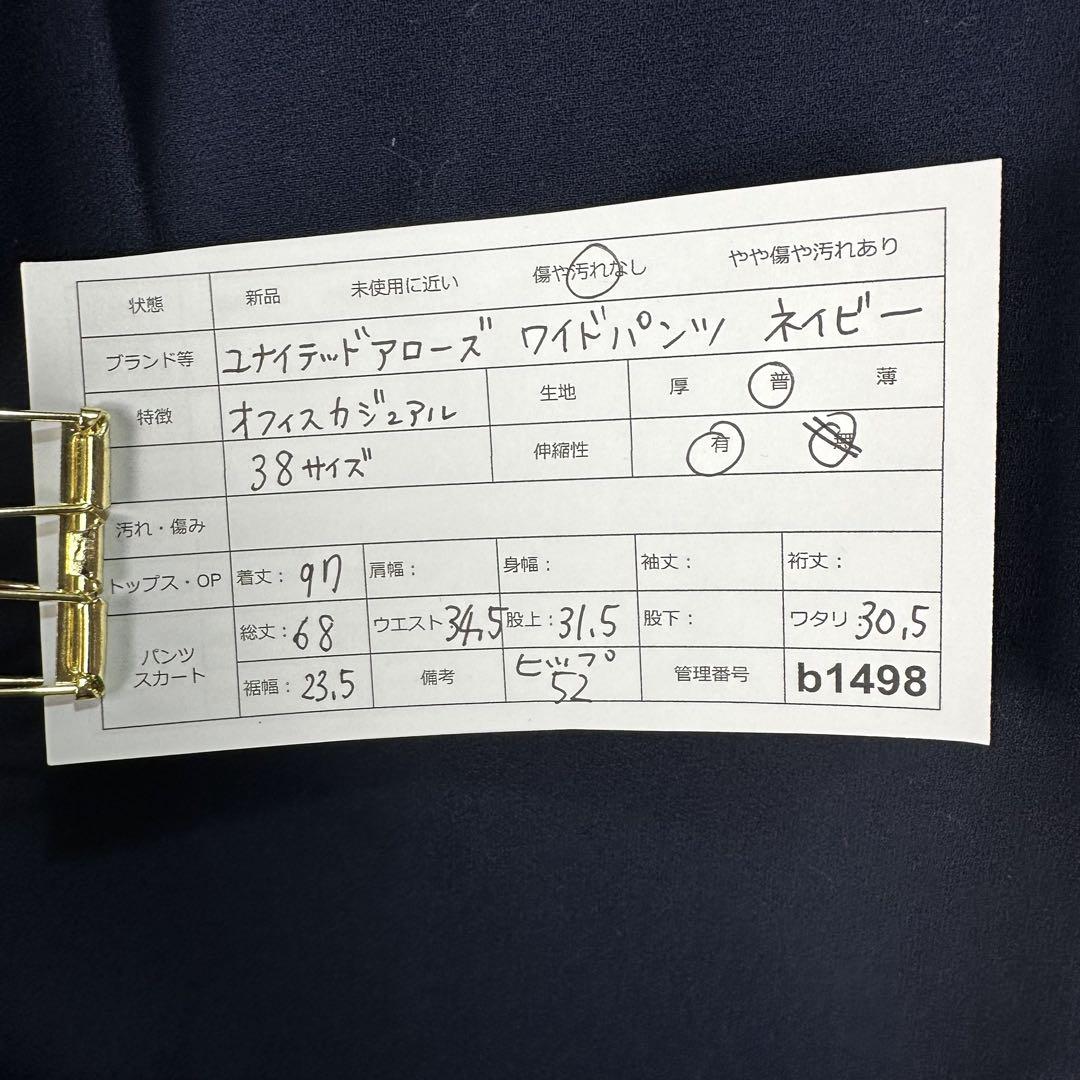 状態 新品 未使用に近い 傷や汚れなし やや傷や汚れあり
ブランド等 ユナイテッドアローズ ワイドパンツ ネイビー
特徴 オフィスカジュアル 生地 厚 普 薄
38サイズ 伸縮性 有 無
汚れ・傷み
トップス・OP 着丈: 97 肩幅: 身幅: 袖丈: 裄丈:
パンツ スカート 総丈: 68 ウエスト 34.5 股上: 31.5 股下: ワタリ: 30.5
裾幅: 23.5 備考 ヒップ 52 管理番号 b1498